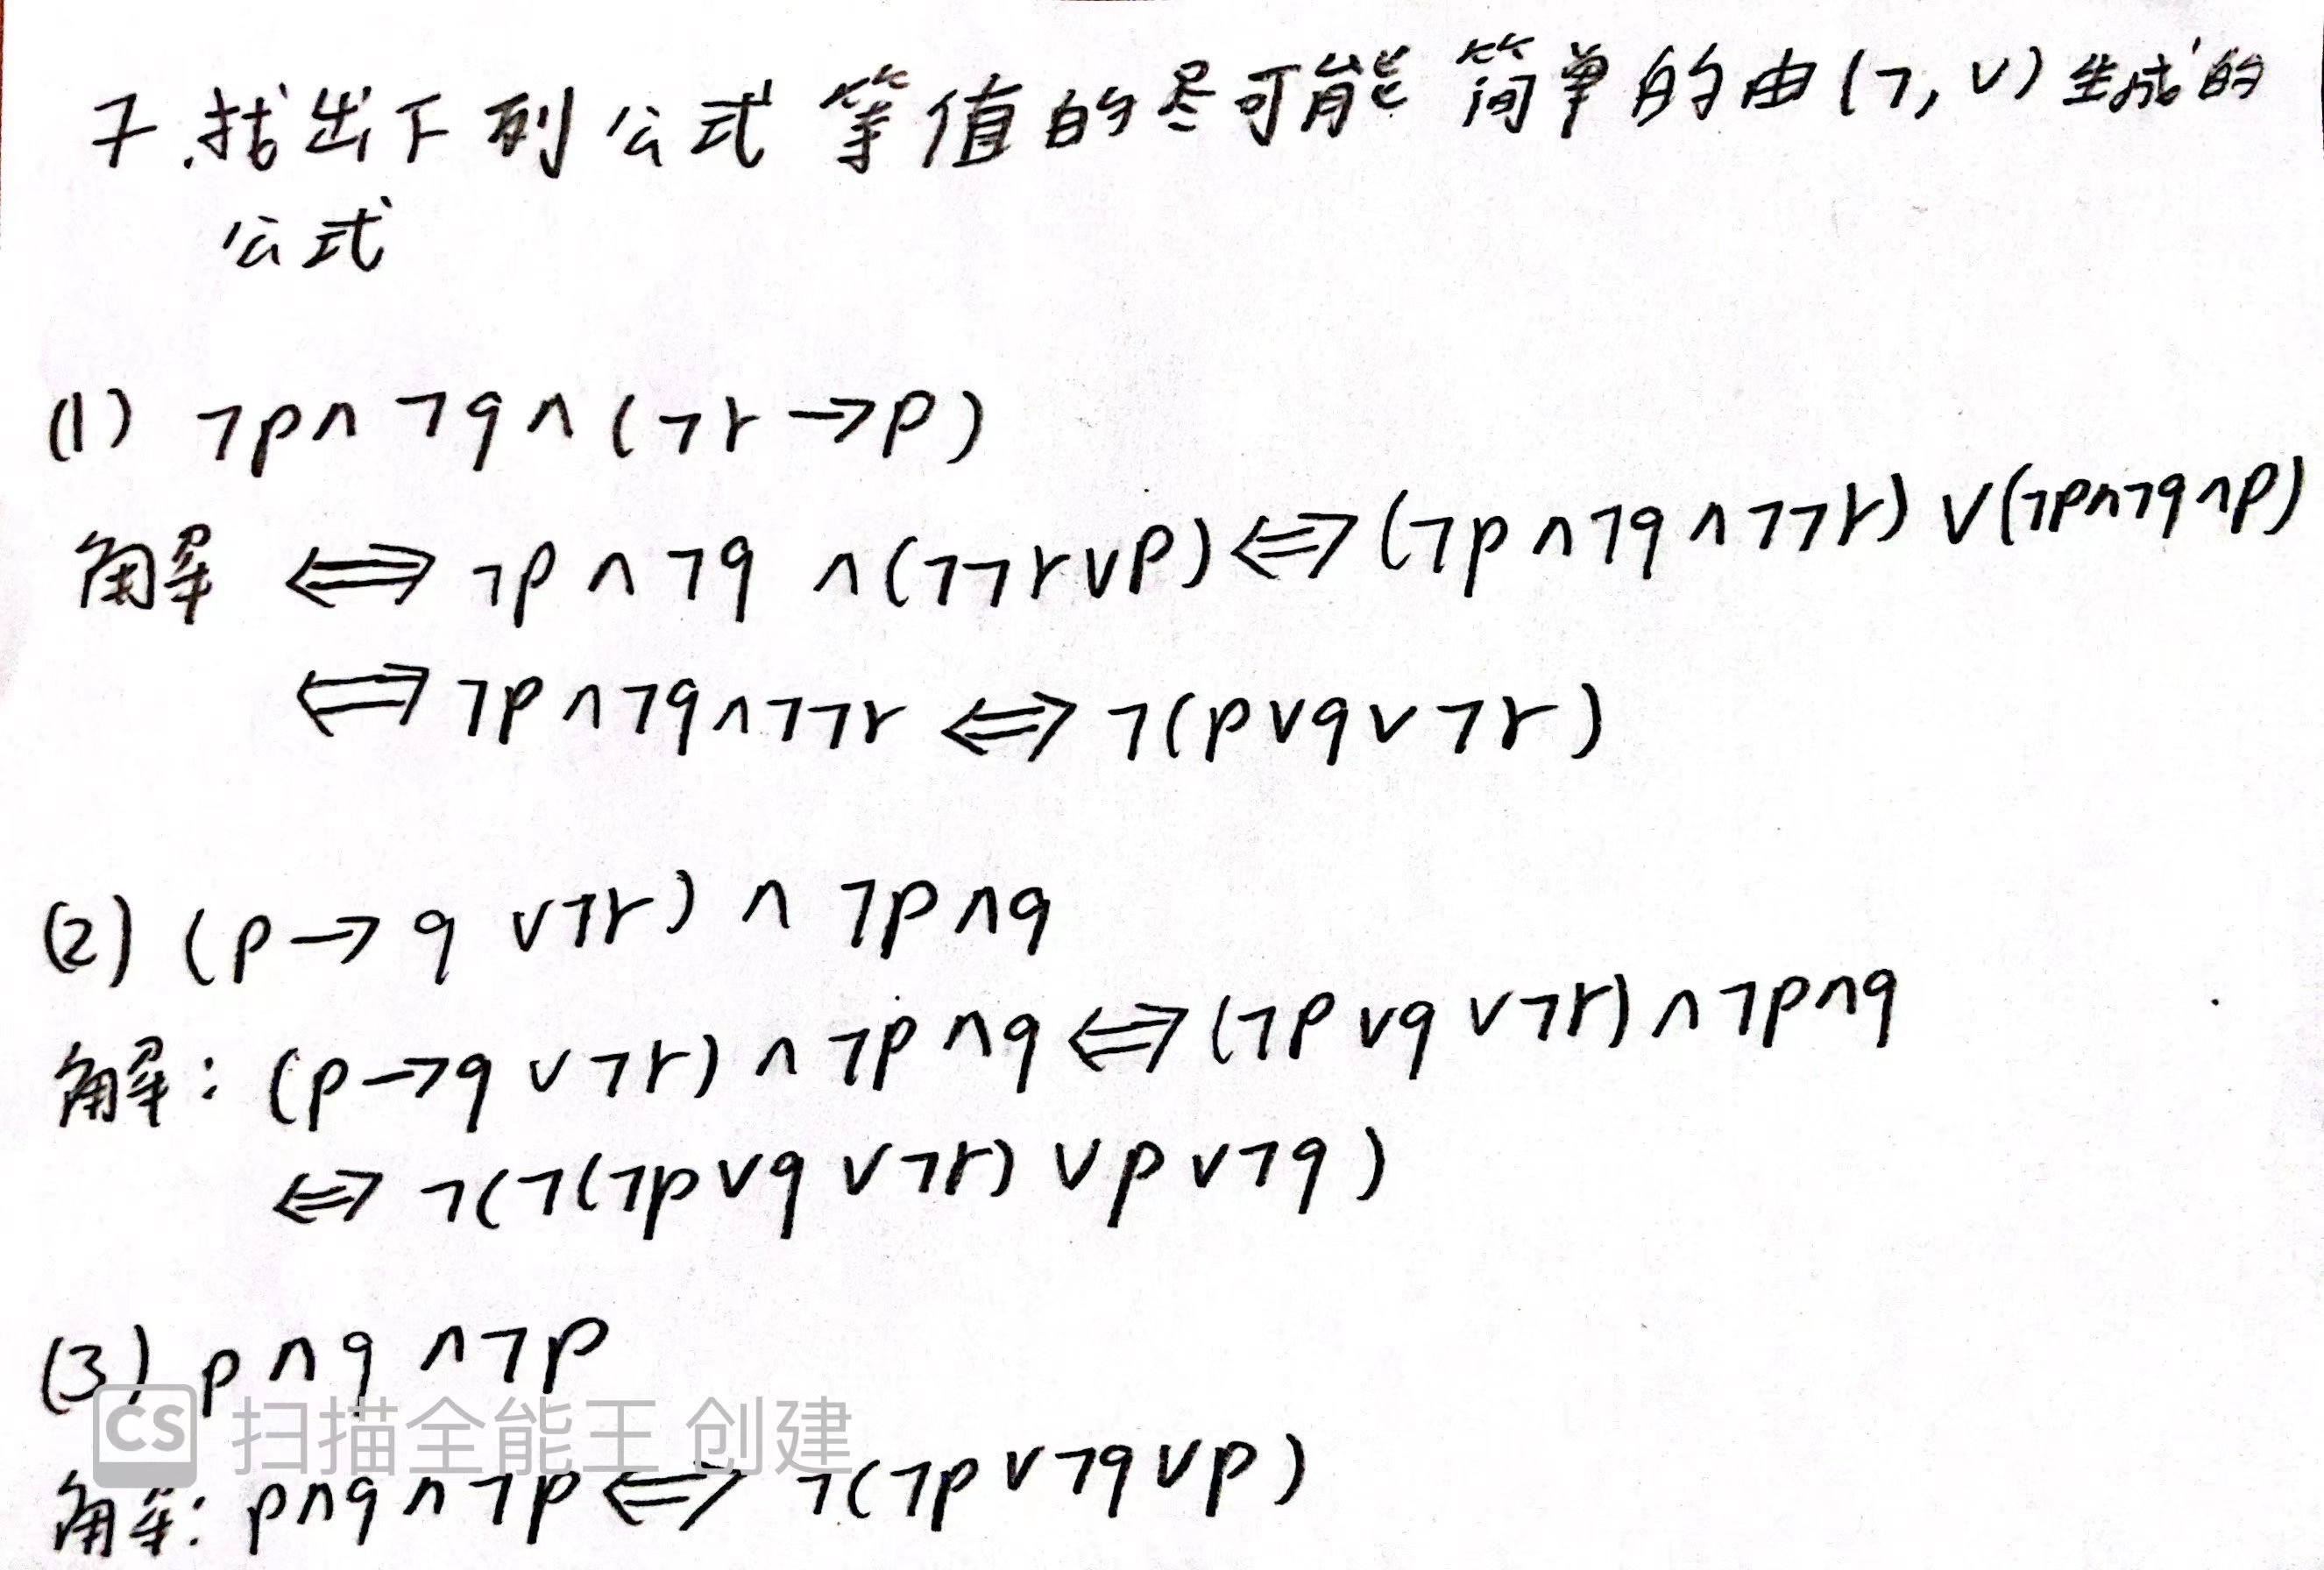 7.找出下列公式等值的尽可能简单的由(¬,∨)生成的
公式
(1) ¬p∧¬q∧(¬r→p)
解 ⟺ ¬p∧¬q∧(¬¬r∨p)⟺(¬p∧¬q∧¬¬r)∨(¬p∧¬q∧p)
⟺ ¬p∧¬q∧¬¬r ⟺ ¬(p∨q∨¬r)
(2) (p→q∨¬r)∧¬p∧q
解: (p→q∨¬r)∧¬p∧q⟺(¬p∨q∨¬r)∧¬p∧q
⟺ ¬(¬(¬p∨q∨¬r)∨p∨¬q)
(3) p∧q∧¬p
CS 扫描全能王 创建
解: p∧q∧¬p⟺ ¬(¬p∨¬q∨p)